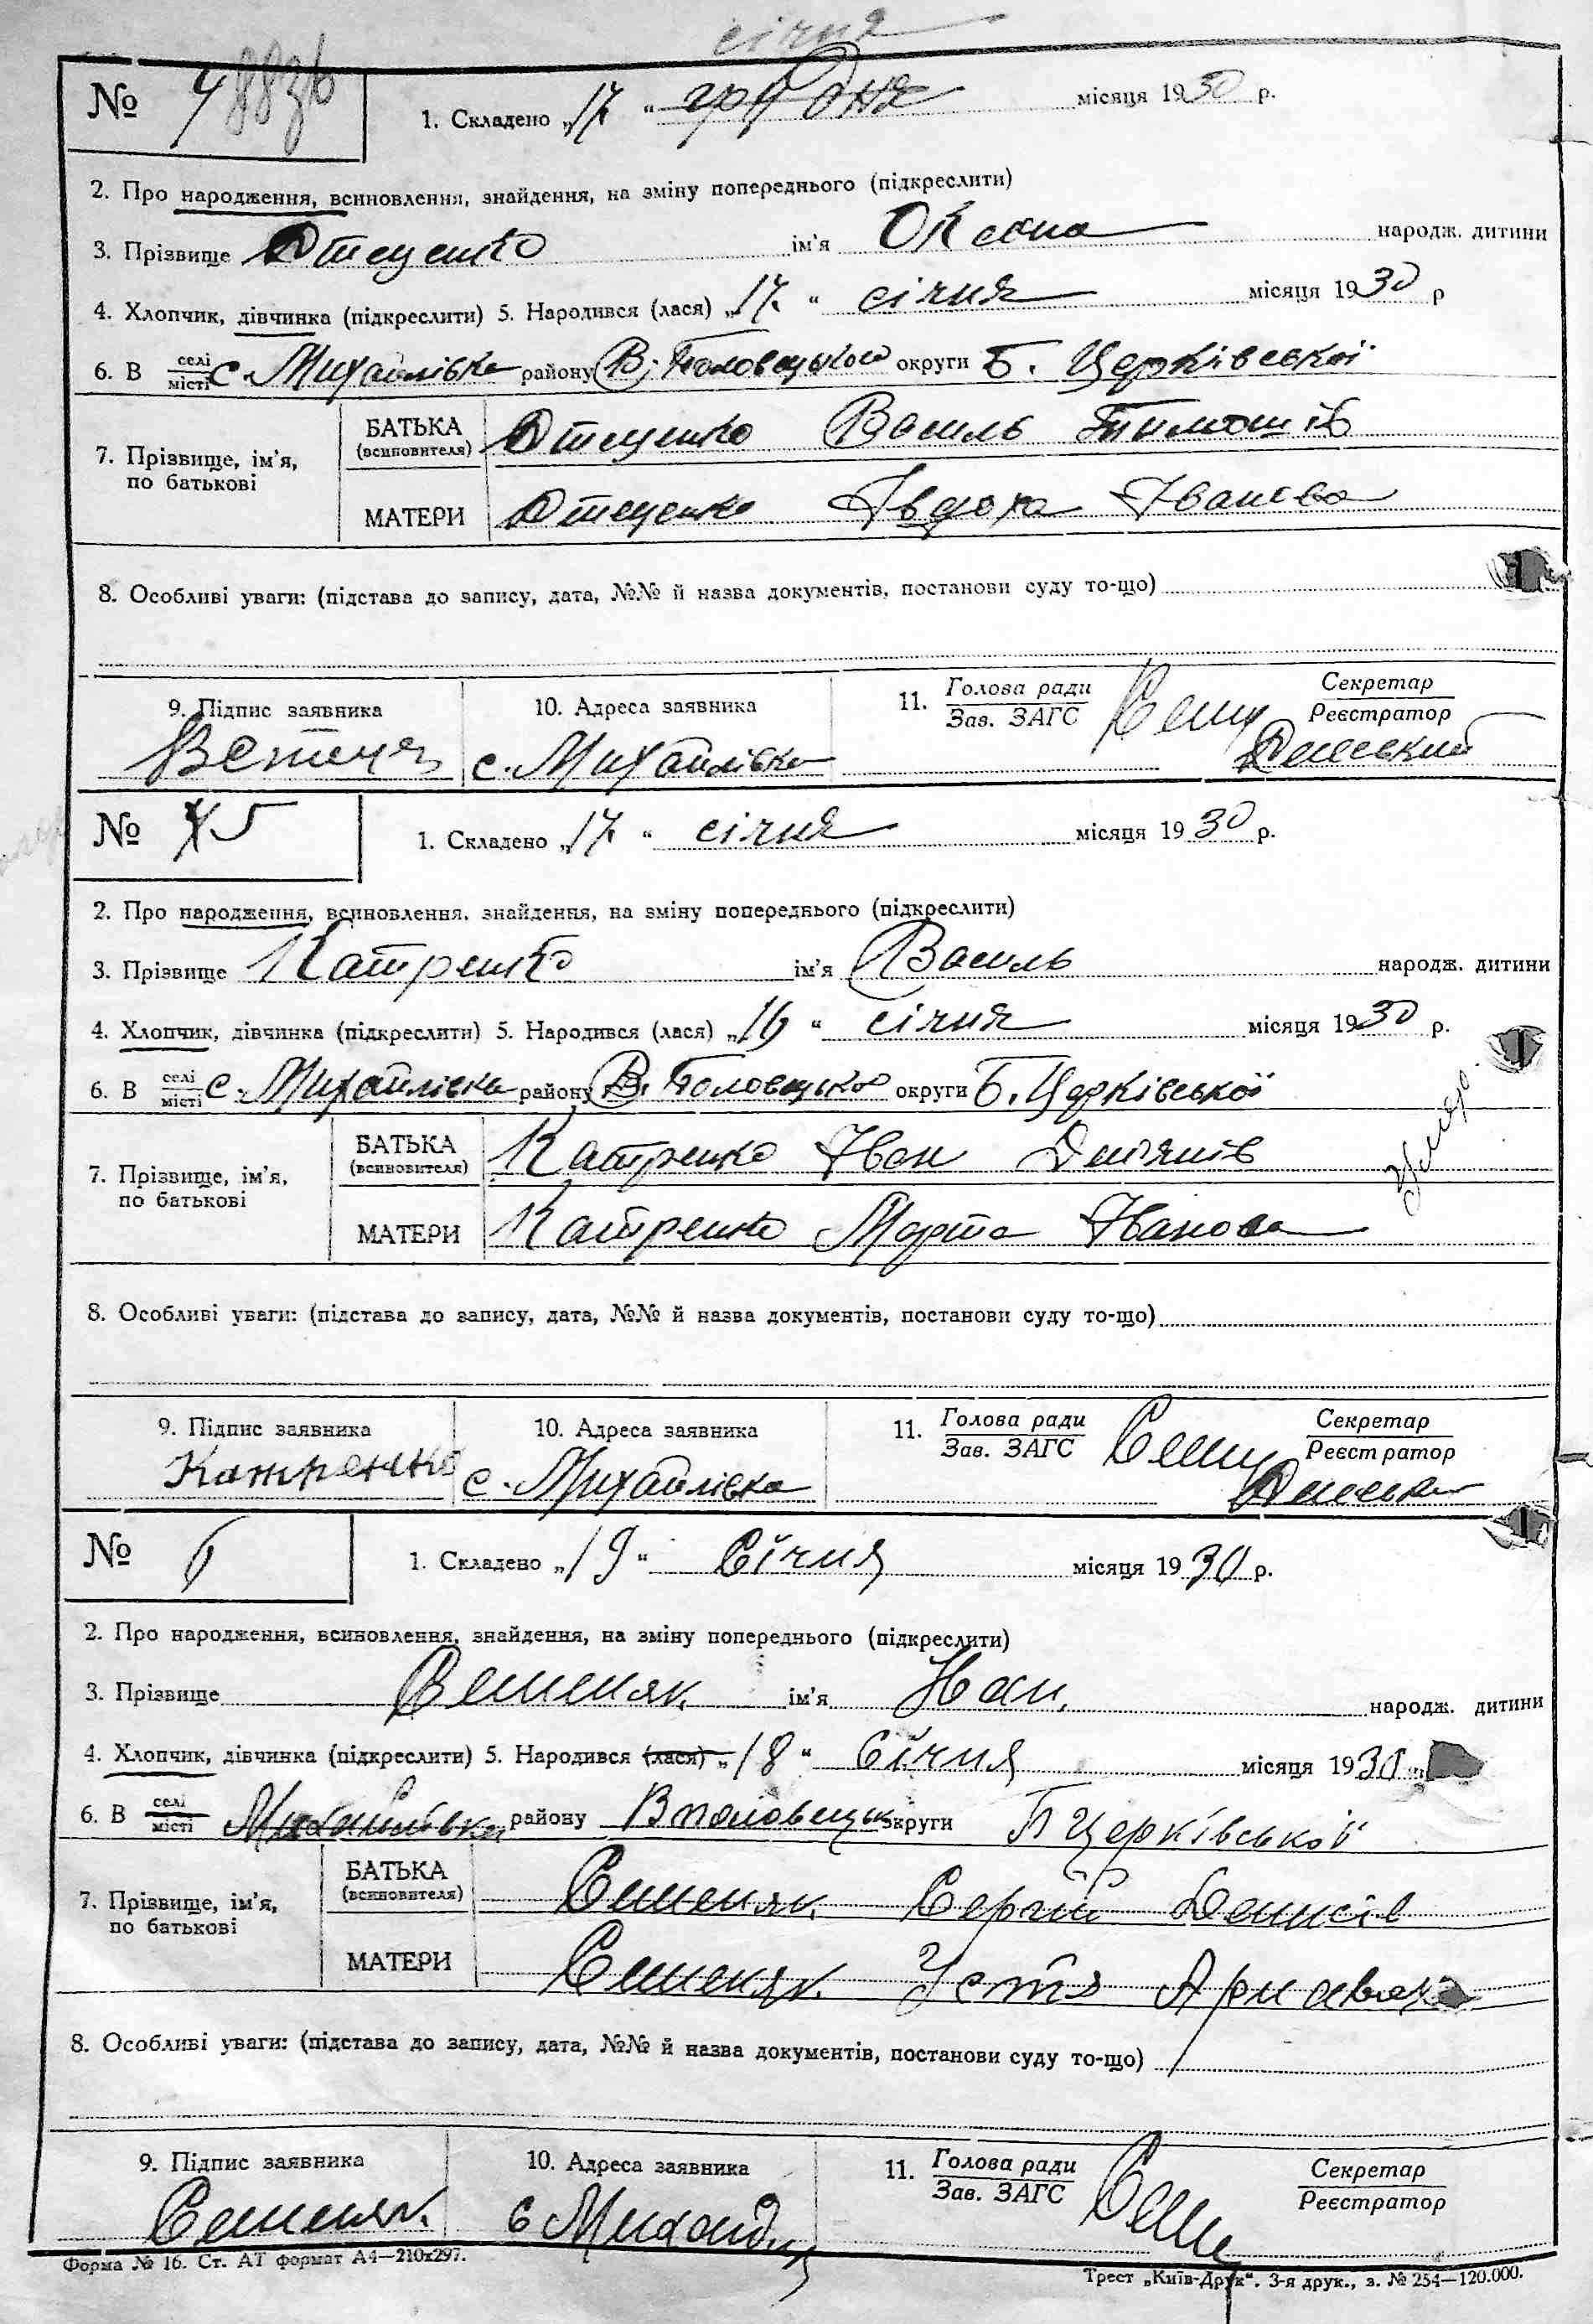 січня
№ 4
1. Складено „17 “ грудня місяця 1930 р.
2. Про народження, всиновлення, знайдення, на зміну попереднього (підкреслити)
3. Прізвище ім'я Оксана народж. дитини
4. Хлопчик, дівчинка (підкреслити) 5. Народився (лася) „17 “ січня місяця 1930 р
6. В селі місті с. Михайлівка району В. Половецького округи Б. Церківської
7. Прізвище, ім'я, по батькові
БАТЬКА (всиновителя) Василь Тимошів
МАТЕРИ Явдоха Іванова
8. Особливі уваги: (підстава до запису, дата, №№ й назва документів, постанови суду то-що)
9. Підпис заявника 10. Адреса заявника 11. Голова ради Зав. ЗАГС Секретар Реєстратор
с. Михайлівка
№ 5
1. Складено „17 “ січня місяця 1930 р.
2. Про народження, всиновлення, знайдення, на зміну попереднього (підкреслити)
3. Прізвище Катренко ім'я Василь народж. дитини
4. Хлопчик, дівчинка (підкреслити) 5. Народився (лася) „16 “ січня місяця 1930 р.
6. В селі місті с. Михайлівка району В. Половецького округи Б. Церківської
7. Прізвище, ім'я, по батькові
БАТЬКА (всиновителя) Катренко Іван Дем'янів
МАТЕРИ Катренко Марта Іванова
8. Особливі уваги: (підстава до запису, дата, №№ й назва документів, постанови суду то-що)
9. Підпис заявника 10. Адреса заявника 11. Голова ради Зав. ЗАГС Секретар Реєстратор
Катренко с. Михайлівка
№ 6
1. Складено „19 “ Січня місяця 1930 р.
2. Про народження, всиновлення, знайдення, на зміну попереднього (підкреслити)
3. Прізвище Семеняк ім'я Іван народж. дитини
4. Хлопчик, дівчинка (підкреслити) 5. Народився (лася) „18 “ Січня місяця 1930
6. В селі місті Михайлівка району В половецьк округи Б Церківської
7. Прізвище, ім'я, по батькові
БАТЬКА (всиновителя) Семеняк Сергій Денисів
МАТЕРИ Семеняк Устя
8. Особливі уваги: (підстава до запису, дата, №№ й назва документів, постанови суду то-що)
9. Підпис заявника 10. Адреса заявника 11. Голова ради Зав. ЗАГС Секретар Реєстратор
Семеняк с
Форма № 16. Ст. АТ формат А4—210х297.
Трест „Київ-Друк“. 3-я друк., з. № 254—120.000.